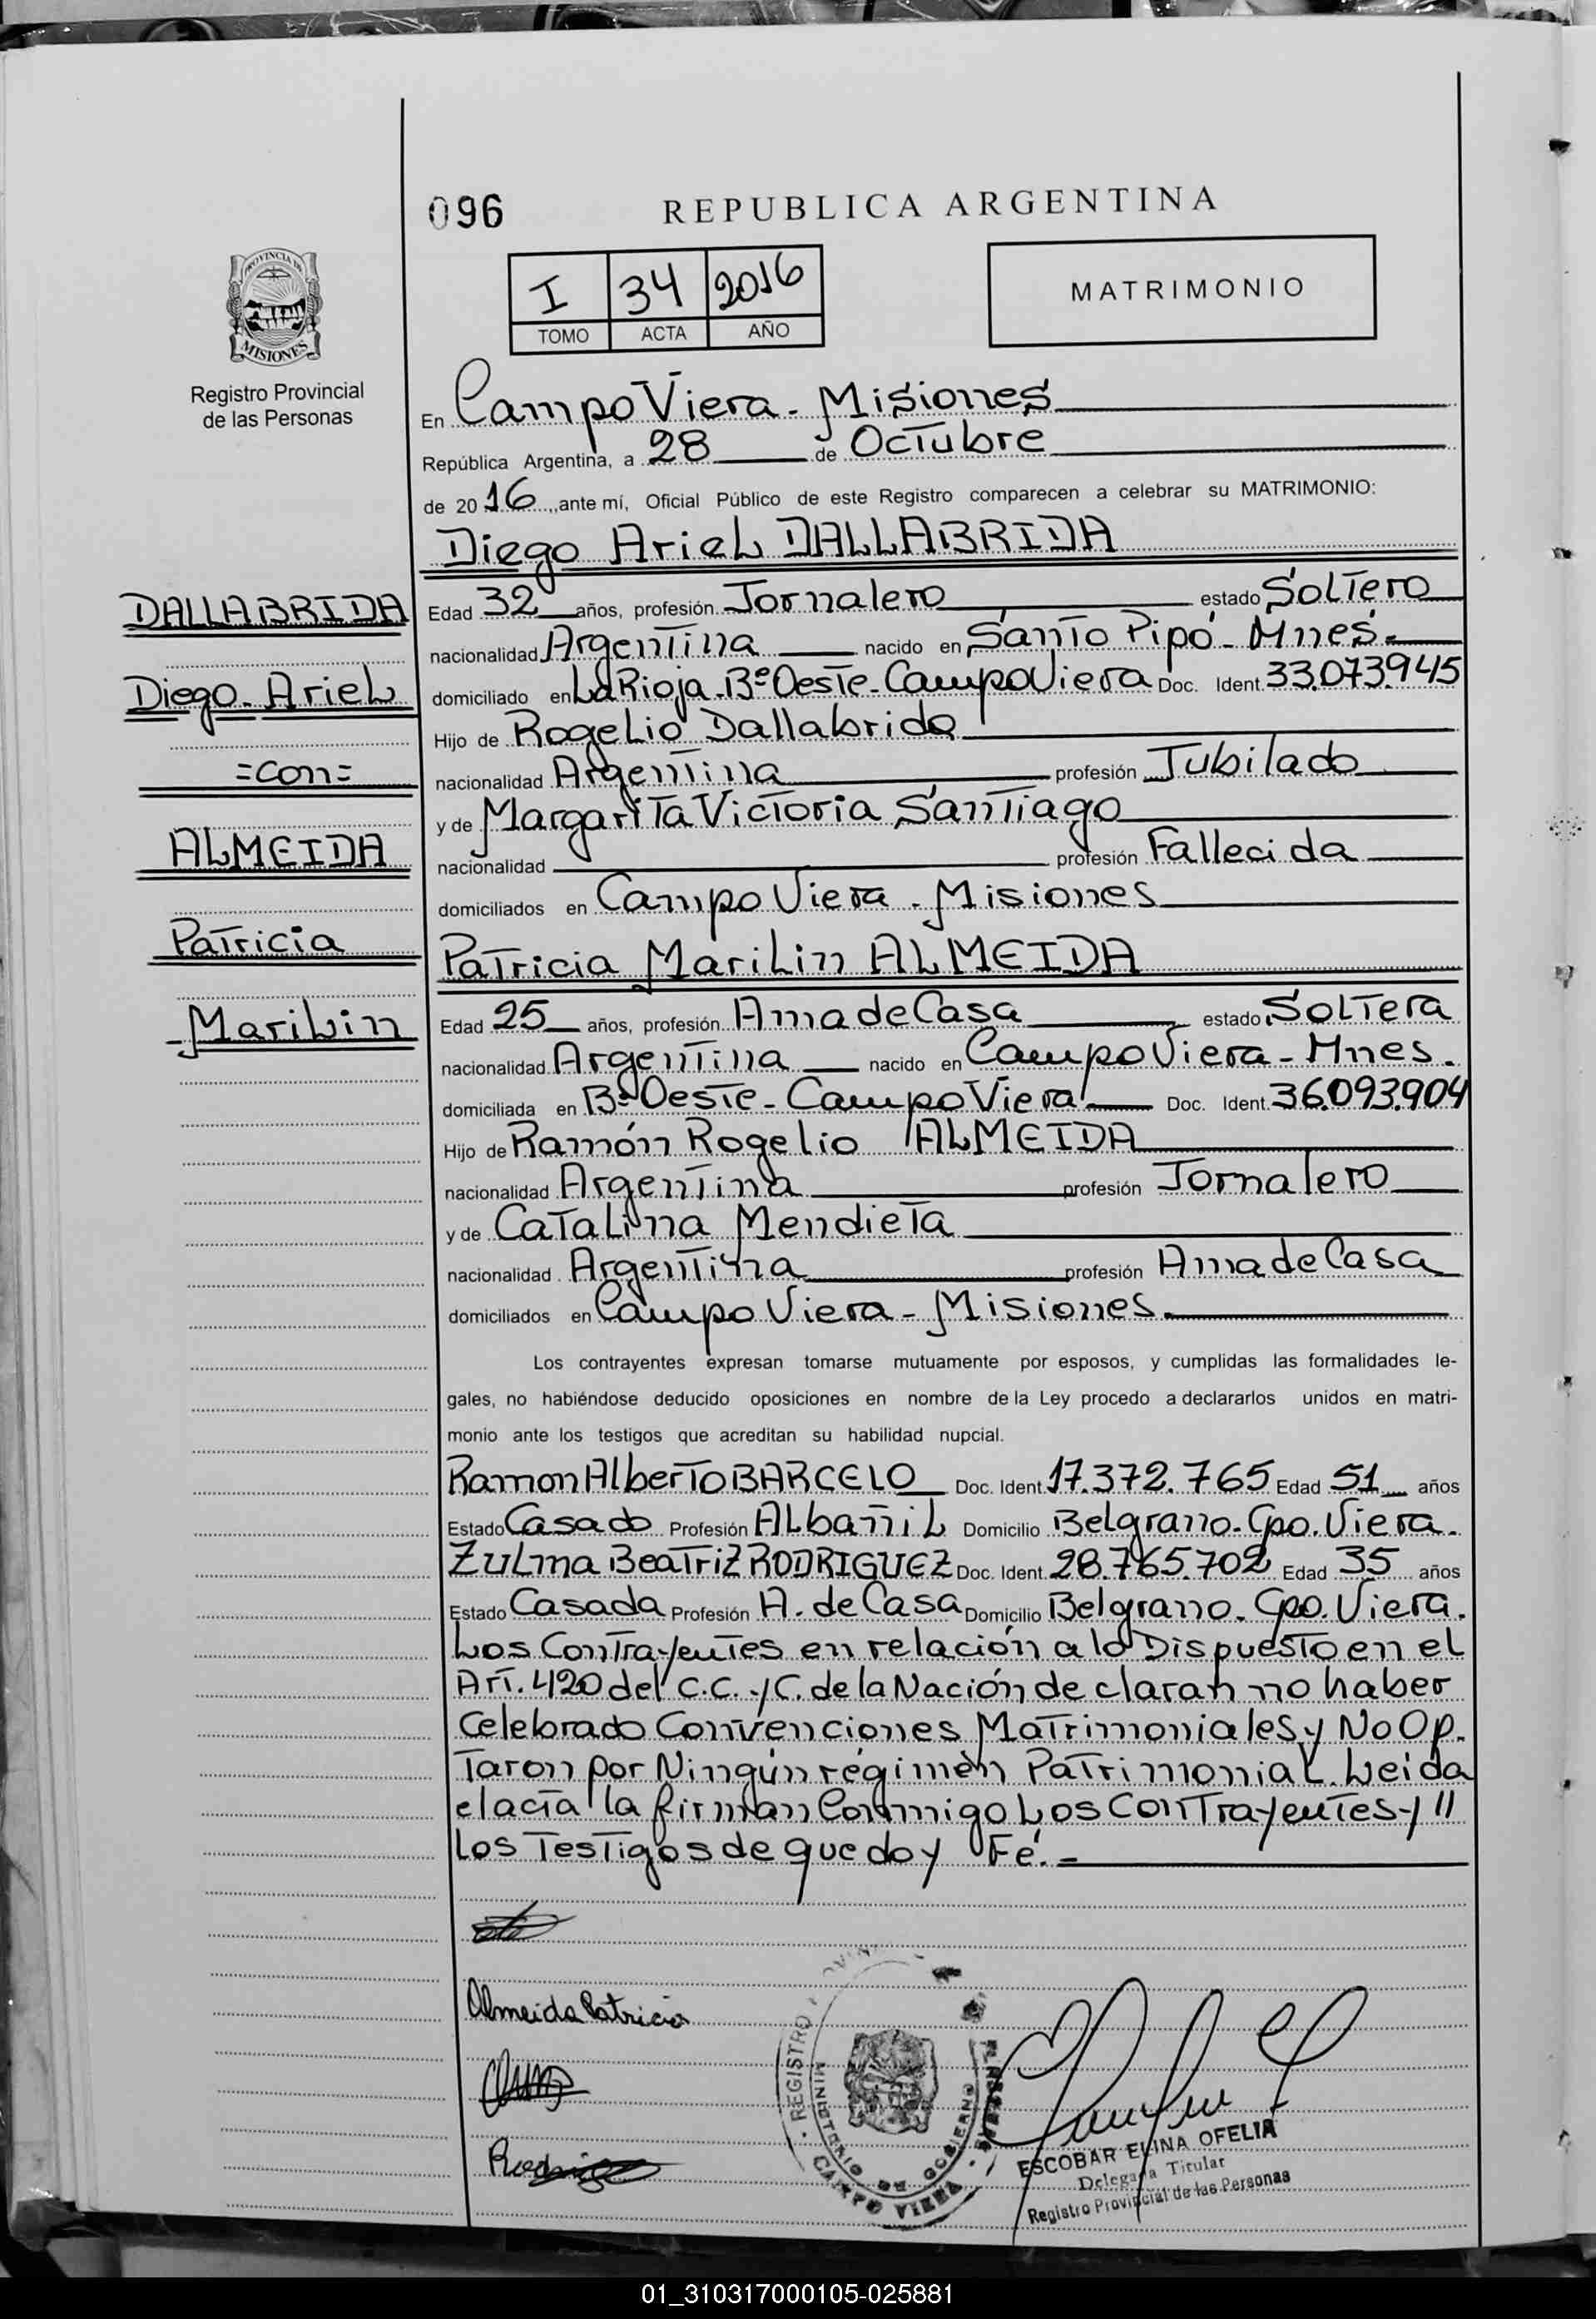 096
REPUBLICA ARGENTINA
PROVINCIA DE
MISIONES
Registro Provincial
de las Personas
I 34 2016
TOMO ACTA AÑO
MATRIMONIO
En Campo Viera - Misiones
República Argentina, a 28 de Octubre
de 2016, ante mí, Oficial Público de este Registro comparecen a celebrar su MATRIMONIO:
Diego Ariel DALLABRIDA
DALLABRIDA
Diego Ariel
=con=
ALMEIDA
Patricia
Marilin
Edad 32 años, profesión Jornalero estado Soltero
nacionalidad Argentina nacido en Santo Pipó - Mnes.
domiciliado en La Rioja - Bº Oeste - Campo Viera Doc. Ident. 33.073.945
Hijo de Rogelio Dallabrida
nacionalidad Argentina profesión Jubilado
y de Margarita Victoria Santiago
nacionalidad profesión Fallecida
domiciliados en Campo Viera - Misiones
Patricia Marilin ALMEIDA
Edad 25 años, profesión Ama de Casa estado Soltera
nacionalidad Argentina nacido en Campo Viera - Mnes.
domiciliada en Bº Oeste - Campo Viera Doc. Ident. 36.093.904
Hijo de Ramón Rogelio ALMEIDA
nacionalidad Argentina profesión Jornalero
y de Catalina Mendieta
nacionalidad Argentina profesión Ama de Casa
domiciliados en Campo Viera - Misiones.
Los contrayentes expresan tomarse mutuamente por esposos, y cumplidas las formalidades le-
gales, no habiéndose deducido oposiciones en nombre de la Ley procedo a declararlos unidos en matri-
monio ante los testigos que acreditan su habilidad nupcial.
Ramon Alberto BARCELO Doc. Ident. 17.372.765 Edad 51 años
Estado Casado Profesión Albañil Domicilio Belgrano - Cpo. Viera.
Zulma Beatriz RODRIGUEZ Doc. Ident. 28.765.702 Edad 35 años
Estado Casada Profesión A. de Casa Domicilio Belgrano - Cpo. Viera.
Los Contrayentes en relación a lo Dispuesto en el
Art. 420 del C.C. y C. de la Nación declaran no haber
Celebrado Convenciones Matrimoniales y No Op-
taron por Ningún régimen Patrimonial. Leida
el acta la firman Conmigo Los Contrayentes y //
los Testigos de que doy Fé. -
Almeida Patricia
REGISTRO
MINISTERIO DE GOBIERNO
CAMPO VIERA
ESCOBAR ELINA OFELIA
Delegada Titular
Registro Provincial de las Personas
01_310317000105-025881